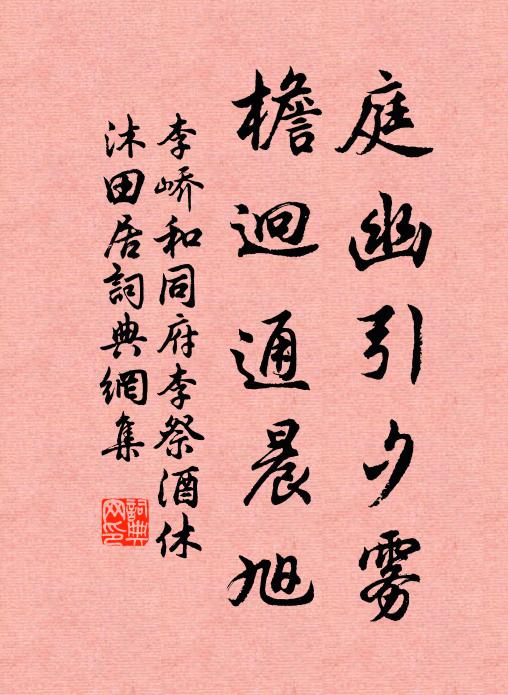 庭幽引夕雾
檐迥通晨旭
李峤和同府李祭酒休
沐田居詞典網集
詞典
网印